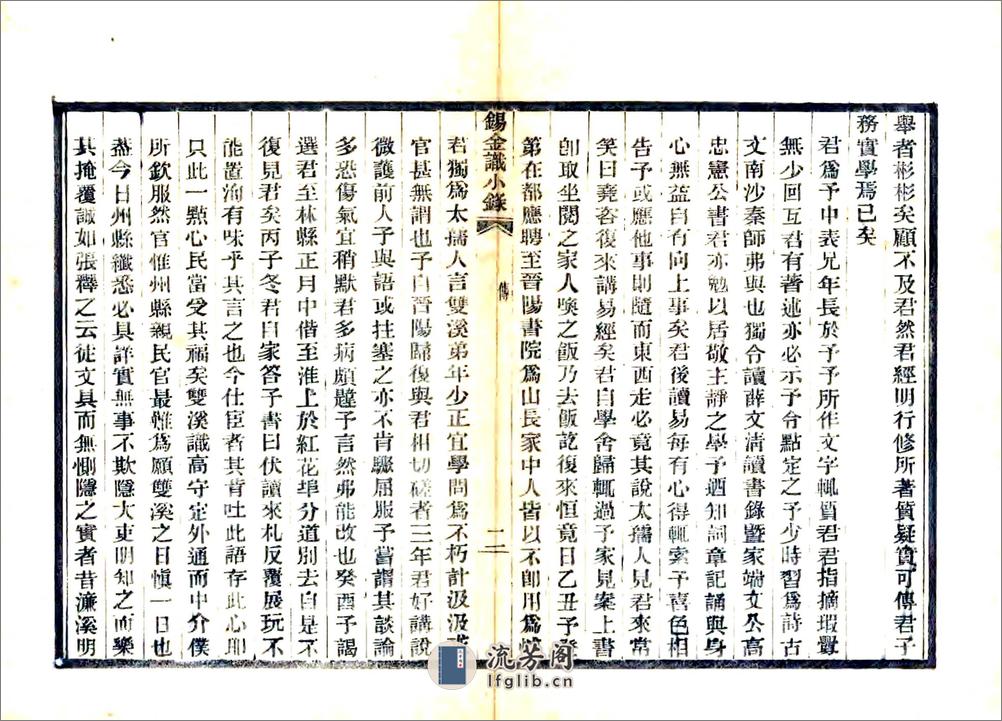 舉者彬彬矣顧不及君然君經明行修所著質疑實可傳君子
務實學焉已矣
君爲予中表兄年長於予予所作文字輒質君君指摘瑕釁
無少回互君有著述亦必示予令點定之予少時習爲詩古
文南沙秦師弗與也獨令讀薛文淸讀書錄暨家端文公高
忠憲公書君亦勉以居敬主靜之學予迺知詞章記誦與身
心無益自有向上事矣君後讀易每有心得輒索予喜色相
告予或應他事則隨而東西走必竟其說太孺人見君來常
笑曰堯咨復來講易經矣君自學舍歸輒過予家見案上書
卽取坐閱之家人喚之飯乃去飯訖復來恒竟日乙丑予登
第在都應聘至晉陽書院爲山長家中人皆以不卽用爲
君獨爲太孺人言雙溪弟年少正宜學問爲不朽計汲汲
官甚無謂也予自晉陽歸復與君相切磋者三年君好講說
微護前人予與語或拄塞之亦不肯驟屈服予嘗謂其談論
多恐傷氣宜稍默君多病頗韙予言然弗能改也癸酉予謁
選君至林縣正月中偕至淮上於紅花埠分道別去自是不
復見君矣丙子冬君自家答予書曰伏讀來札反覆展玩不
能置洵有味乎其言之也今仕臣者其肯吐此語存此心卽
只此一點心民當受其福矣雙溪識高守定外通而中介僕
所欽服然官惟州縣親民官最難爲願雙溪之日愼一日也
蓋今日州縣纖悉必具詳實無事不欺隱大吏明知之而樂
其掩覆誠如張釋之云徒文具而無惻隱之實者昔濂溪明
錫金識小錄
傳
二二
流芳阁
lfglib.cn